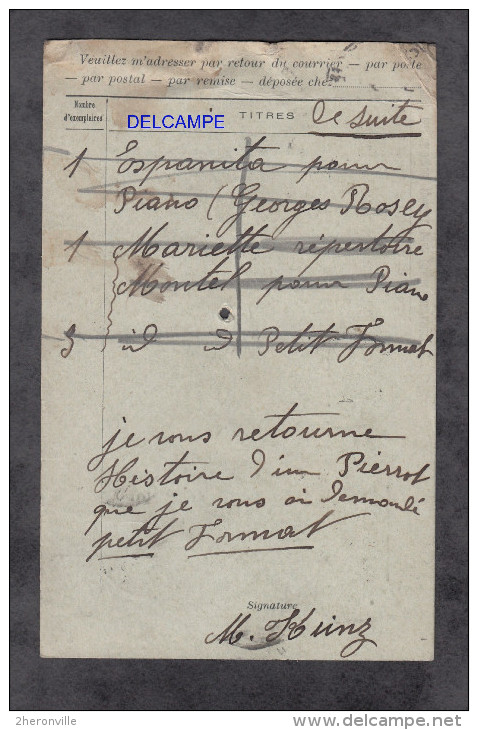 Veuillez m'adresser par retour du courrier — par poste
— par postal — par remise — déposée chez
Nombre
d'exemplaires
TITRES
de suite
DELCAMPE
1 Espanita pour
Piano (Georges Rosey
1 Mariette répertoire
Montel pour Piano
3 id d Petit Format
je vous retourne
Histoire d'un Pierrot
que je vous ai demandé
petit Format
Signature
M. Kunz
© 2heronville
www.delcampe.net